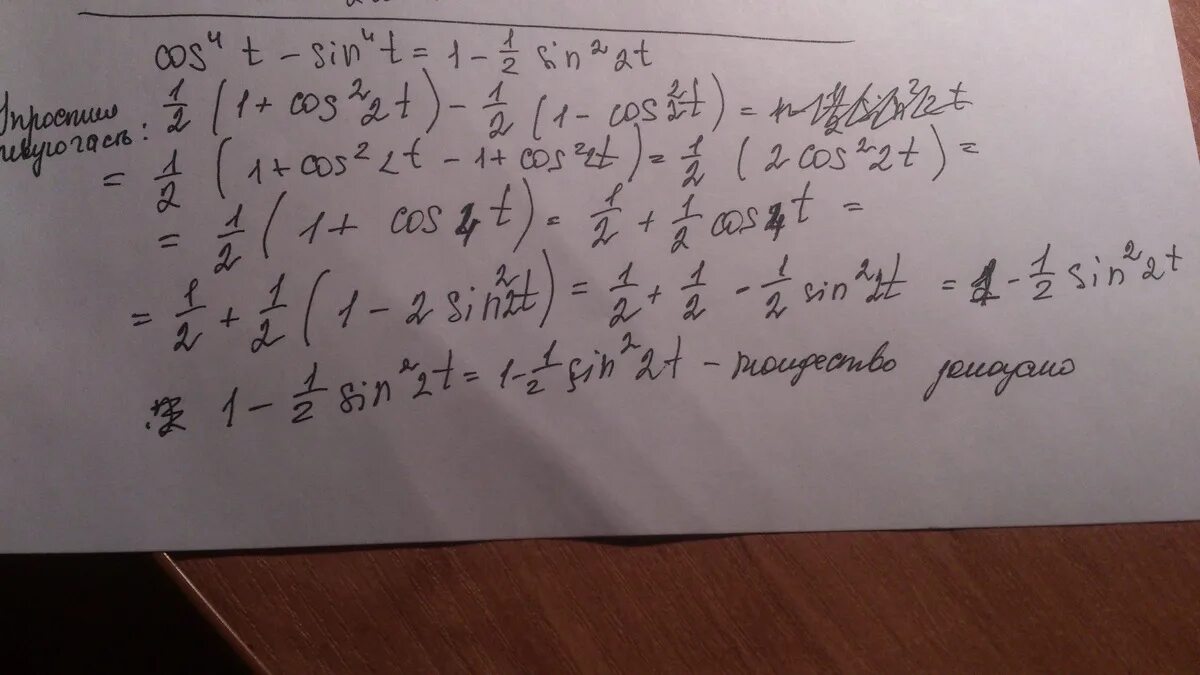 cos⁴ t - sin⁴ t = 1 - 1/2 sin² 2t
Упростим 1/2 (1 + cos² 2t) - 1/2 (1 - cos² 2t) =
левую часть:
= 1/2 (1 + cos² 2t - 1 + cos² 2t) = 1/2 (2 cos² 2t) =
= 1/2 (1 + cos 4t) = 1/2 + 1/2 cos 4t =
= 1/2 + 1/2 (1 - 2 sin² 2t) = 1/2 + 1/2 - 1/2 sin² 2t = 1 - 1/2 sin² 2t
1 - 1/2 sin² 2t = 1 - 1/2 sin² 2t - тождество доказано